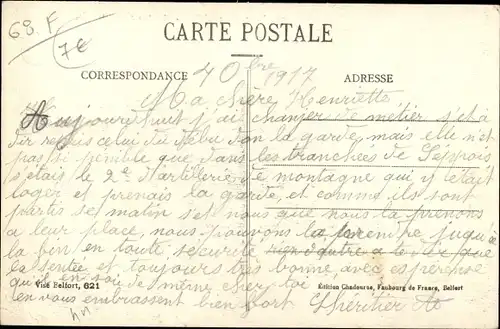 68. F
7€
CARTE POSTALE
CORRESPONDANCE
ADRESSE
1917
Ma chère Henriette
Aujourd'huit j'ai changer le métier s'et à
dir repris celui du début don la garde mais elle n'et
pas si penible que dans les tranchées de Seppois
s'etais le 2e d'artillerie de montagne qui y était
loger et prenais la garde et comme ils sont
partis se matin s'et nous que nous la prenons
a leur place, nous pouvons la prendre juqu'à
la fin en toute sécurité rien d'autre a te dir que
la sentée et toujours très bonne avec esperense
qu'il en soie de même cher toi
en vous embrassent bien fort Lhéritier
Visé Belfort, 621
Édition Chadourne, Faubourg de France, Belfort